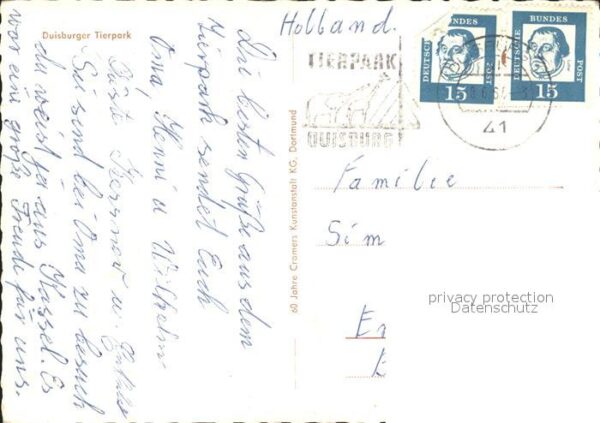 Duisburger Tierpark
Holland.
Die besten Grüße aus dem
Tierpark sendet Euch
Oma, Henni u Wilhelm
Gäste u.
Sie sind bei Oma zu besuch
du weist ja aus Kassel. Es
war ein große Freude für uns.
60 Jahre Cramers Kunstanstalt KG, Dortmund
TIERPARK
DUISBURG
DEUTSCHE BUNDES POST
15
DEUTSCHE BUNDES POST
15
41
Familie
Sim
privacy protection
Datenschutz
En
E